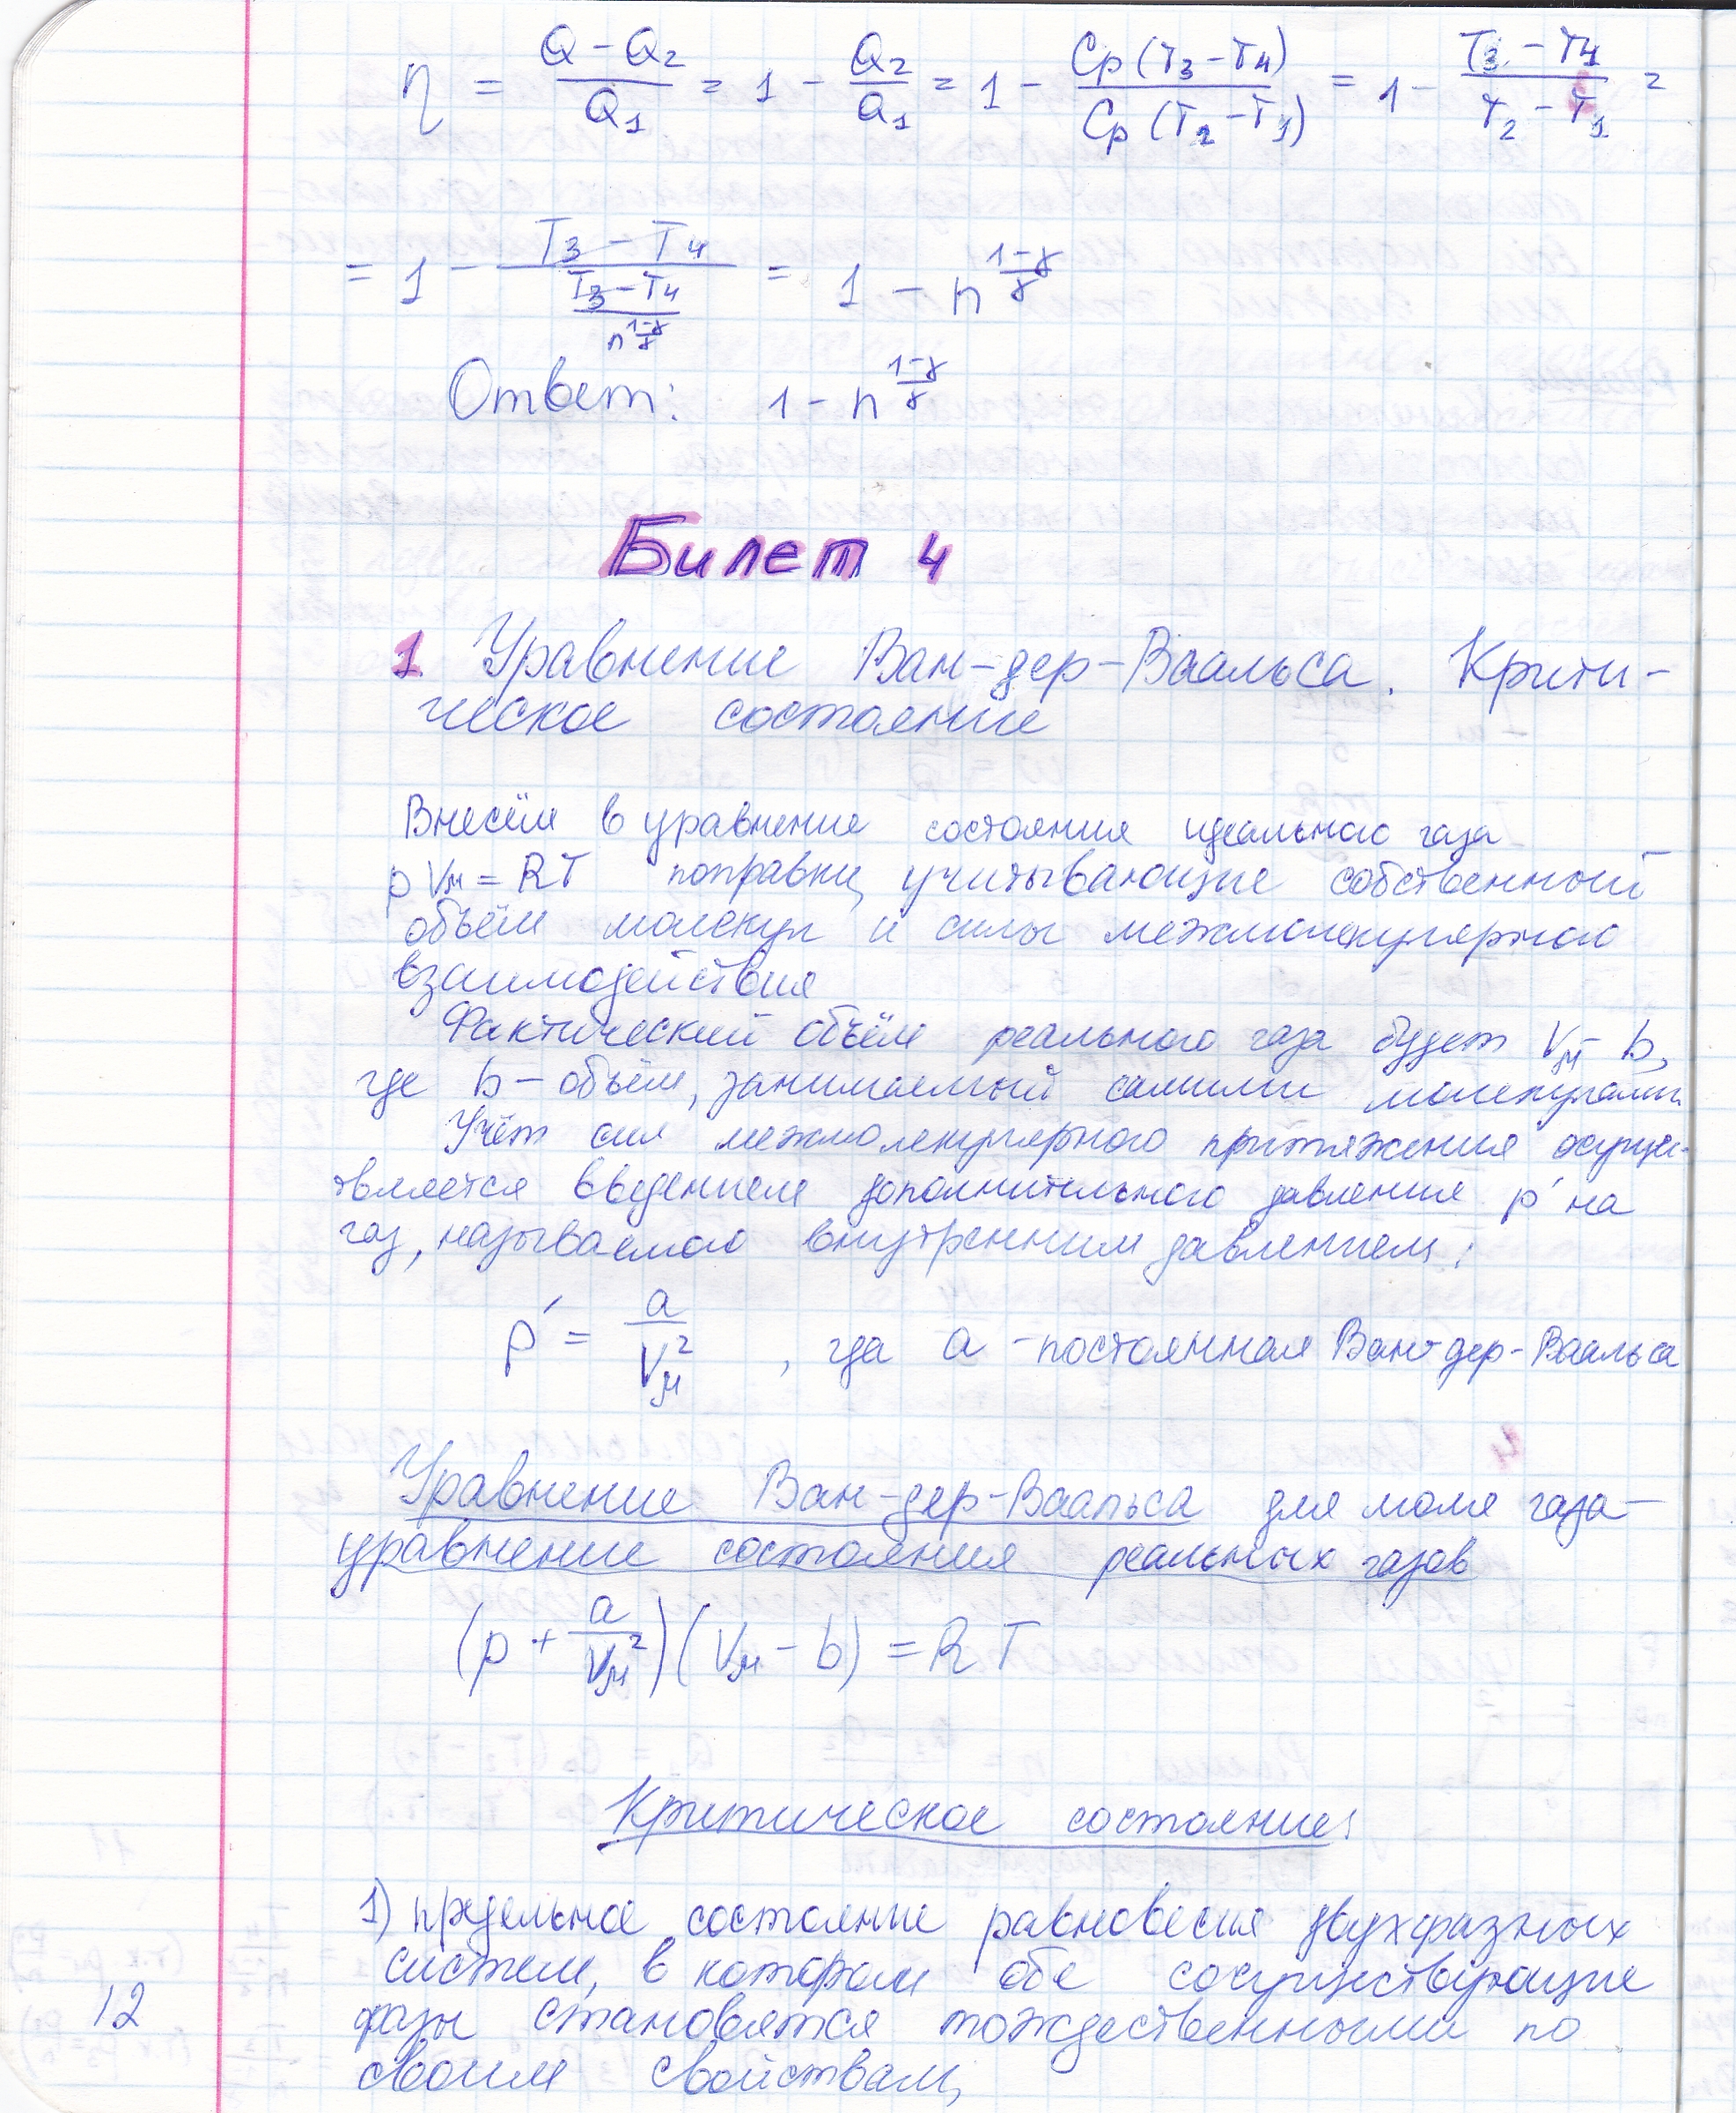 η = (Q - Q₂)/Q₁ = 1 - Q₂/Q₁ = 1 - Cp(T₃-T₄)/Cp(T₂-T₁) = 1 - (T₃-T₄)/(T₂-T₁) =
= 1 - (T₃-T₄)/((T₃-T₄)/n^((1-γ)/γ)) = 1 - n^((1-γ)/γ)
Ответ: 1 - n^((1-γ)/γ)
Билет 4
1 Уравнение Ван-дер-Ваальса. Крити-
ческое состояние
Внесём в уравнение состояния идеального газа
pVμ = RT поправки, учитывающие собственный
объём молекул и силы межмолекулярного
взаимодействия
Фактический объём реального газа будет Vμ - b,
где b - объём, занимаемый самими молекулами
Учёт сил межмолекулярного притяжения осущес-
твляется введением дополнительного давления p′ на
газ, называемого внутренним давлением:
p′ = a/Vμ² , где a - постоянная Ван-дер-Ваальса
Уравнение Ван-дер-Ваальса для моля газа -
уравнение состояния реальных газов
(p + a/Vμ²)(Vμ - b) = RT
Критическое состояние:
1) предельное состояние равновесия двухфазных
систем, в котором обе сосуществующие
фазы становятся тождественными по
своим свойствам,
12